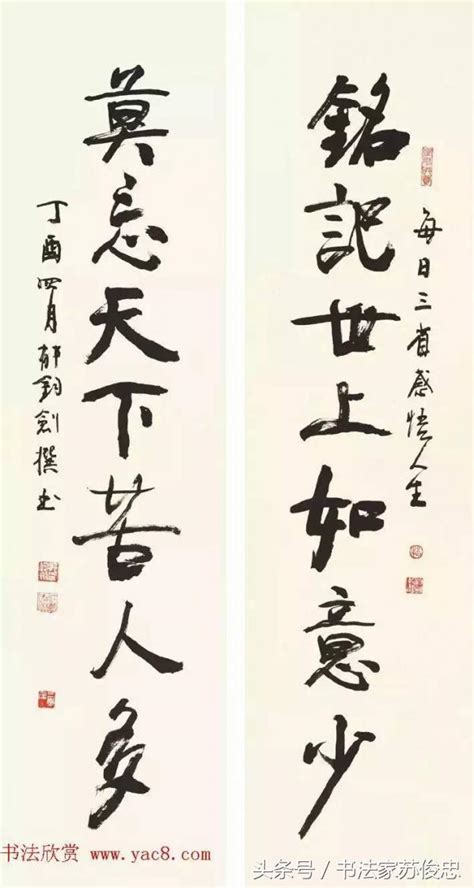 銘記世上如意少
每日三省感悟人生
莫忘天下苦人多
丁酉四月郁钧剑撰书
书法欣赏 www.yac8.com
头条号/书法家苏俊忠